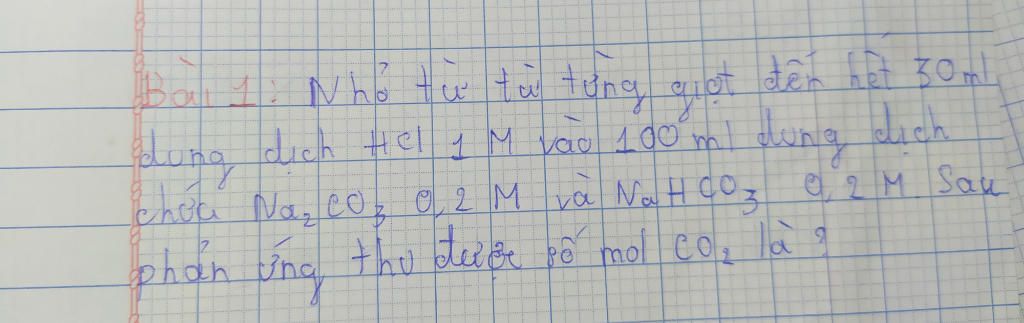 Bài 1: Nhỏ từ từ từng giọt đến hết 30ml
dung dịch HCl 1M vào 100ml dung dịch
chứa Na₂CO₃ 0,2M và NaHCO₃ 0,2M Sau
phản ứng thu được số mol CO₂ là?